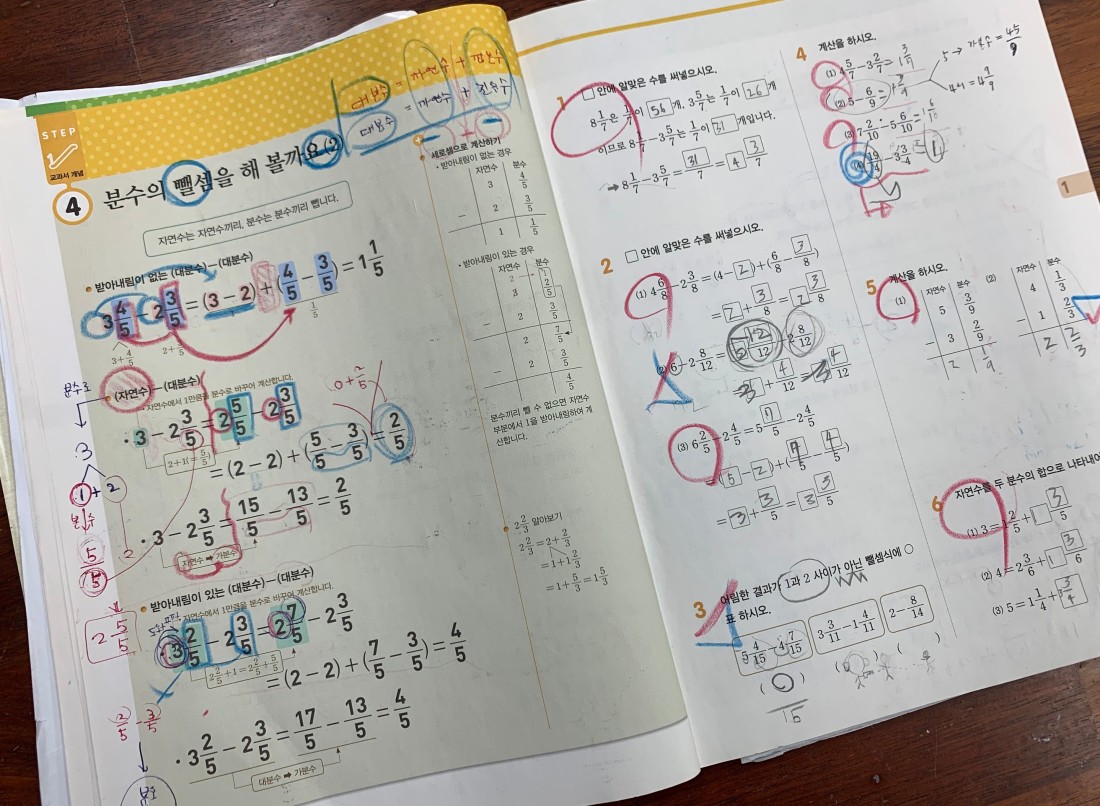 대분수 = 자연수 + 진분수
대분수 = 자연수 + 진분수
STEP
교과서 개념
4
분수의 뺄셈을 해 볼까요(2)
자연수는 자연수끼리, 분수는 분수끼리 뺍니다.
받아내림이 없는 (대분수)−(대분수)
3 4/5 − 2 3/5 = (3−2) + 4/5 − 3/5 = 1 1/5
3+4/5 2+3/5 1/5
(자연수)−(대분수)
자연수에서 1만큼을 분수로 바꾸어 계산합니다.
0+2/5
3 − 2 3/5 = 2 5/5 − 2 3/5
= (2−2) + (5/5 − 3/5) = 2/5
3 − 2 3/5 = 15/5 − 13/5 = 2/5
자연수 ➡ 가분수
분수로
3
1+2
분수
5/5
2
2 5/5
받아내림이 있는 (대분수)−(대분수)
자연수에서 1만큼을 분수로 바꾸어 계산합니다.
3 2/5 − 2 3/5 = 2 7/5 − 2 3/5
2 2/5+1=2 2/5+5/5
= (2−2) + (7/5 − 3/5) = 4/5
2/5 − 3/5
3 2/5 − 2 3/5 = 17/5 − 13/5 = 4/5
대분수 ➡ 가분수
세로셈으로 계산하기
• 받아내림이 없는 경우
자연수 분수
3 4/5
− 2 3/5
1 1/5
• 받아내림이 있는 경우
자연수 분수
3 2/5
− 2 3/5
2 7/5
− 2 3/5
4/5
분수끼리 뺄 수 없으면 자연수
부분에서 1을 받아내림하여 계
산합니다.
2 2/3 알아보기
2 2/3 = 2 + 2/3
= 1 + 1 2/3
= 1 + 5/3 = 1 5/3
1 □ 안에 알맞은 수를 써넣으시오.
8 1/7은 1/7이 56개, 3 5/7는 1/7이 26개
이므로 8 1/7 − 3 5/7는 1/7이 31개입니다.
➡ 8 1/7 − 3 5/7 = 31/7 = 4 3/7
2 □ 안에 알맞은 수를 써넣으시오.
(1) 4 6/8 − 2 3/8 = (4−2) + (6/8 − 3/8)
= 2 + 3/8 = 2 3/8
(2) 6 − 2 8/12 = 5 12/12 − 2 8/12
= 3 + 4/12 = 3 4/12
(3) 6 2/5 − 2 4/5 = 5 7/5 − 2 4/5
= (5−2) + (7/5 − 4/5)
= 3 + 3/5 = 3 3/5
3 어림한 결과가 1과 2 사이가 아닌 뺄셈식에 ○
표 하시오.
5 4/15 − 4 7/15 3 3/11 − 1 4/11 2 − 8/14
( ○ ) ( ) ( )
15
4 계산을 하시오.
(1) 4 5/7 − 3 2/7 = 1 3/7
5 → 가분수 = 45/9
(2) 5 − 6/9 =
4 9/9
(3) 7 2/10 − 5 6/10 = 1 6/10
(4) 19/4 − 3 3/4 = 1
1
5 계산을 하시오.
(1) 자연수 분수 (2) 자연수 분수
5 3/9 4 1/3
− 3 2/9 − 1 2/3
2 1/9 2 2/3
6 자연수를 두 분수의 합으로 나타내어
(1) 3 = 1 2/5 + □ 3/5
(2) 4 = 2 3/6 + □ 3/6
(3) 5 = 1 1/4 + 3 3/4